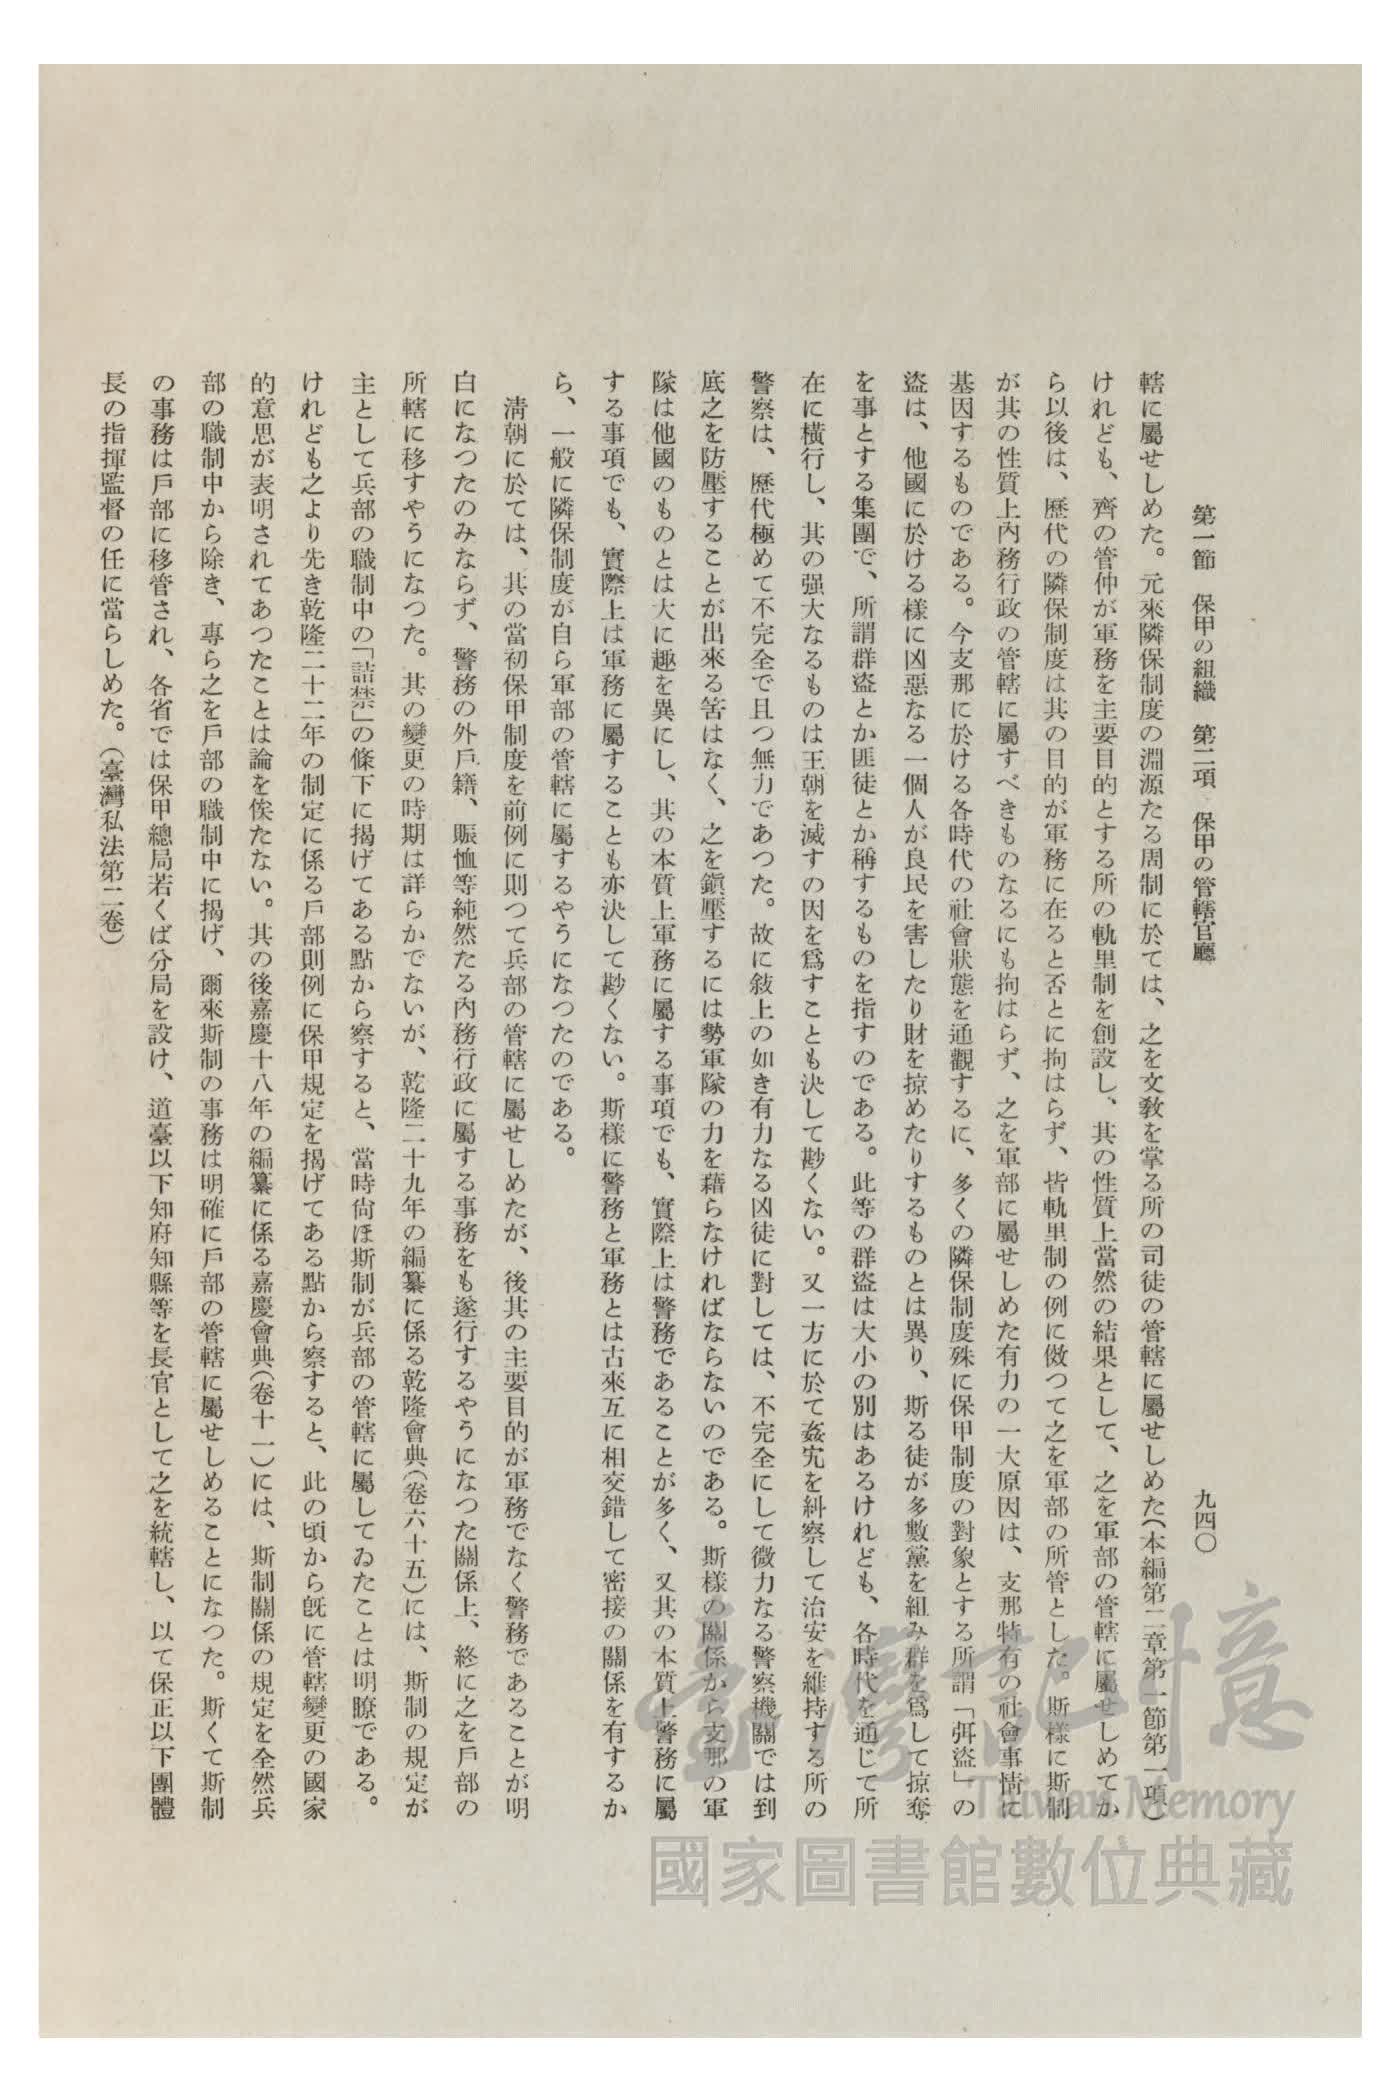 第一節　保甲の組織　第二項　保甲の管轄官廳　九四〇
轄に屬せしめた。元來隣保制度の淵源たる周制に於ては、之を文敎を掌る所の司徒の管轄に屬せしめた(本編第二章第一節第一項)
けれども、齊の管仲が軍務を主要目的とする所の軌里制を創設し、其の性質上當然の結果として、之を軍部の管轄に屬せしめてか
ら以後は、歷代の隣保制度は其の目的が軍務に在ると否とに拘はらず、皆軌里制の例に傚つて之を軍部の所管とした。斯樣に斯制
が其の性質上內務行政の管轄に屬すべきものなるにも拘はらず、之を軍部に屬せしめた有力の一大原因は、支那特有の社會事情に
基因するものである。今支那に於ける各時代の社會狀態を通觀するに、多くの隣保制度殊に保甲制度の對象とする所謂「弭盜」の
盜は、他國に於ける樣に凶惡なる一個人が良民を害したり財を掠めたりするものとは異り、斯る徒が多數黨を組み群を爲して掠奪
を事とする集團で、所謂群盜とか匪徒とか稱するものを指すのである。此等の群盜は大小の別はあるけれども、各時代を通じて所
在に橫行し、其の强大なるものは王朝を滅すの因を爲すことも決して尠くない。又一方に於て姦宄を糾察して治安を維持する所の
警察は、歷代極めて不完全で且つ無力であつた。故に敍上の如き有力なる凶徒に對しては、不完全にして微力なる警察機關では到
底之を防壓することが出來る筈はなく、之を鎭壓するには勢軍隊の力を藉らなければならないのである。斯樣の關係から支那の軍
隊は他國のものとは大に趣を異にし、其の本質上軍務に屬する事項でも、實際上は警務であることが多く、又其の本質上警務に屬
する事項でも、實際上は軍務に屬することも亦決して尠くない。斯樣に警務と軍務とは古來互に相交錯して密接の關係を有するか
ら、一般に隣保制度が自ら軍部の管轄に屬するやうになつたのである。
淸朝に於ては、其の當初保甲制度を前例に則つて兵部の管轄に屬せしめたが、後其の主要目的が軍務でなく警務であることが明
白になつたのみならず、警務の外戶籍、賑恤等純然たる內務行政に屬する事務をも遂行するやうになつた關係上、終に之を戶部の
所轄に移すやうになつた。其の變更の時期は詳らかでないが、乾隆二十九年の編纂に係る乾隆會典(卷六十五)には、斯制の規定が
主として兵部の職制中の「詰禁」の條下に揭げてある點から察すると、當時尙ほ斯制が兵部の管轄に屬してゐたことは明瞭である。
けれども之より先き乾隆二十二年の制定に係る戶部則例に保甲規定を揭げてある點から察すると、此の頃から旣に管轄變更の國家
的意思が表明されてあつたことは論を俟たない。其の後嘉慶十八年の編纂に係る嘉慶會典(卷十一)には、斯制關係の規定を全然兵
部の職制中から除き、專ら之を戶部の職制中に揭げ、爾來斯制の事務は明確に戶部の管轄に屬せしめることになつた。斯くて斯制
の事務は戶部に移管され、各省では保甲總局若くば分局を設け、道臺以下知府知縣等を長官として之を統轄し、以て保正以下團體
長の指揮監督の任に當らしめた。(臺灣私法第二卷)
臺灣記憶
Taiwan Memory
國家圖書館數位典藏